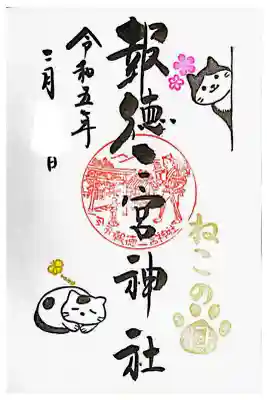 報徳二宮神社
令和五年
二月 日
ねこの日